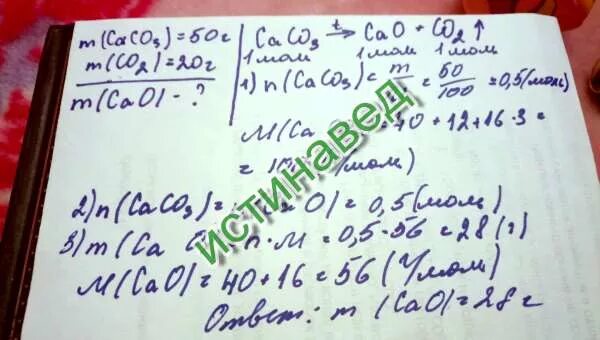 m(CaCO₃)=50г
m(CO₂)=20г
m(CaO) - ?
CaCO₃ t→ CaO + CO₂↑
1 мол 1 мол 1 мол
1) n(CaCO₃) = m = 50/100 = 0,5(мол)
M(Ca = 40 + 12 + 16·3 =
= /мол)
2) n(CaCO₃) = O) = 0,5(мол)
3) m(Ca n·M = 0,5·56 = 28(г)
M(CaO) = 40 + 16 = 56 (г/мол)
Ответ: m (CaO) = 28 г
истинавед